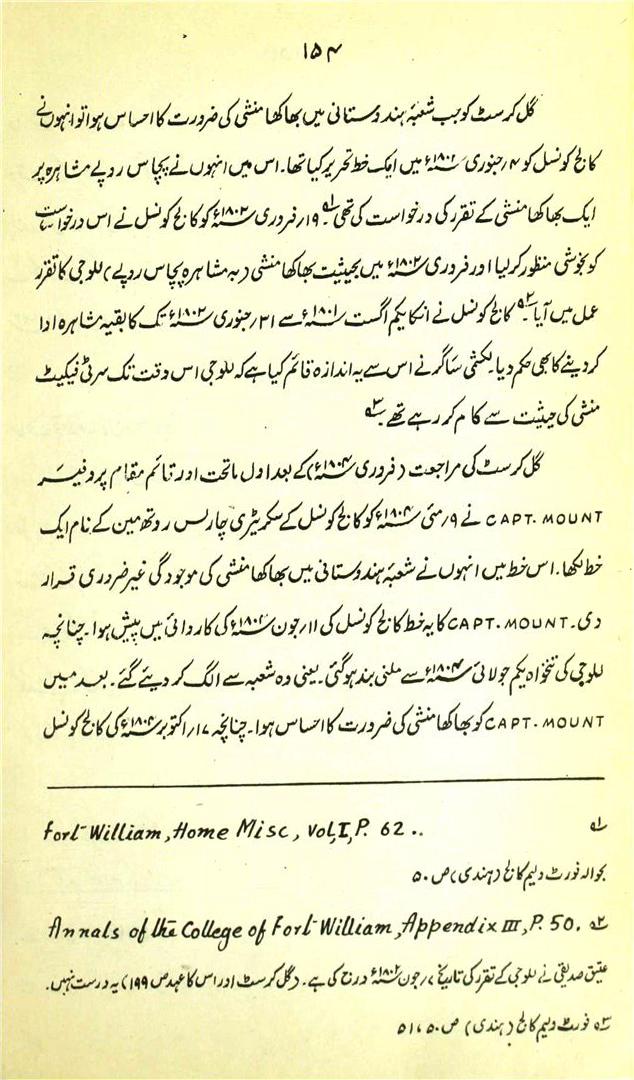 ۱۵۴
گل کرسٹ کو جب شعبۂ ہندوستانی میں بھاکھا منشی کی ضرورت کا احساس ہوا تو انہوں نے
کالج کونسل کو ۴؍جنوری ۱۸۰۲ء میں ایک خط تحریر کیا تھا۔ اس میں انہوں نے پچاس روپے مشاہرہ پر
ایک بھاکھا منشی کے تقرر کی درخواست کی تھی۔ ۱ ۱۹؍فروری ۱۸۰۲ء کو کالج کونسل نے اس درخواست
کو بخوشی منظور کر لیا اور فروری ۱۸۰۲ء میں بحیثیت بھاکھا منشی (بہ مشاہرہ پچاس روپے) للوجی کا تقرر
عمل میں آیا۔ ۲ کالج کونسل نے انکا یکم اگست ۱۸۰۱ء سے ۳۱؍جنوری ۱۸۰۲ء تک کا بقیہ مشاہرہ ادا
کر دینے کا بھی حکم دیا۔ لکشمی ساگر نے اس سے یہ اندازہ قائم کیا ہے کہ للوجی اس وقت تک سرٹی فیکیٹ
منشی کی حیثیت سے کام کر رہے تھے۔ ۳
گل کرسٹ کی مراجعت (فروری ۱۸۰۴ء) کے بعد اول ماتحت اور قائم مقام پروفیسر
CAPT. MOUNT نے ۹؍مئی ۱۸۰۴ء کو کالج کونسل کے سکریٹری چارلس روتھمین کے نام ایک
خط لکھا۔ اس خط میں انہوں نے شعبۂ ہندوستانی میں بھاکھا منشی کی موجودگی غیر ضروری قرار
دی۔ CAPT. MOUNT کا یہ خط کالج کونسل کی ۱۱؍جون ۱۸۰۴ء کی کاروائی میں پیش ہوا۔ چنانچہ
للوجی کی تنخواہ یکم جولائی ۱۸۰۴ء سے ملنی بند ہوگئی۔ یعنی وہ شعبہ سے الگ کر دیئے گئے۔ بعد میں
CAPT. MOUNT کو بھاکھا منشی کی ضرورت کا احساس ہوا۔ چنانچہ ۱۷؍اکتوبر ۱۸۰۴ء کی کالج کونسل
۱ Fort William, Home Misc, Vol, I, P. 62 ..
بحوالہ فورٹ ولیم کالج (ہندی) ص ۵۰
۲ Annals of the College of Fort William, Appendix III, P. 50.
عتیق صدیقی نے للوجی کے تقرر کی تاریخ ۷؍جون ۱۸۰۲ء درج کی ہے۔ (گل کرسٹ اور اس کا عہد ص ۱۹۹) یہ درست نہیں۔
۳ فورٹ ولیم کالج (ہندی) ص ۵۰، ۵۱